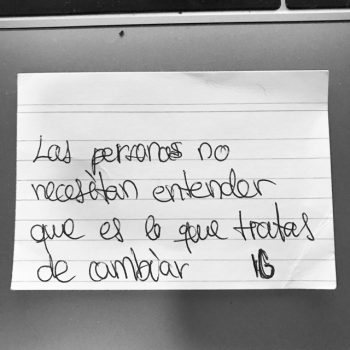 Las personas no
necesitan entender
que es lo que tratas
de cambiar IG